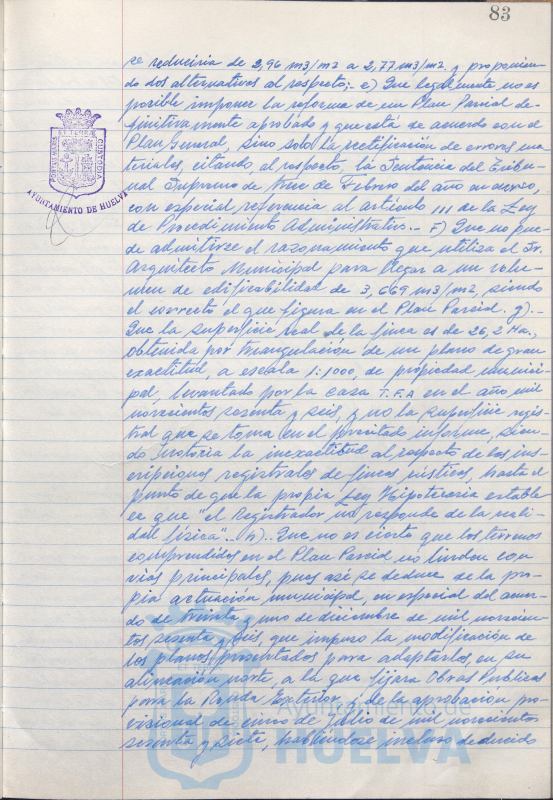 83
se reduciria de 2,96 m3/m2 a 2,77 m3/m2. y proponien-
do dos alternativas al respecto;- e) Que legalmente no es
posible imponer la reforma de un Plan Parcial de-
finitivamente aprobado y que está de acuerdo con el
Plan General, sino solo la rectificación de errores ma-
teriales, citando, al respecto, la Sentencia del Tribu-
nal Supremo de trece de Febrero del año en curso,
con especial referencia al artículo 111 de la Ley
de Procedimiento Administrativo.- F) Que no pue-
de admitirse el razonamiento que utiliza el Sr.
Arquitecto Municipal para llegar a un volu-
men de edificabilidad de 3,669 m3/m2, siendo
el correcto el que figura en el Plan Parcial. g).-
Que la superficie real de la finca es de 26,2 Ha.,
obtenida por triangulación de un plano de gran
exactitud, a escala 1:1000, de propiedad munici-
pal, levantado por la casa T.F.A en el año mil
novecientos sesenta y seis, y no la superficie regis-
tral que se toma en el precitado informe, sien-
do notoria la inexactitud al respecto de las ins-
cripciones registrales de fincas rústicas, hasta el
punto de que la propia Ley Hipotecaria estable-
ce que "el Registrador no responde de la reali-
dad física".- h).- Que no es cierto que los terrenos
comprendidos en el Plan Parcial no linden con
vías principales, pues así se deduce de la pro-
pia actuación municipal, en especial del acuer-
do de treinta y uno de diciembre de mil novecien-
tos sesenta y seis, que impuso la modificación de
los planos presentados para adaptarlos, en su
alineación norte, a la que fijara Obras Publicas
para la Ronda Exterior y de la aprobación pro-
visional de cinco de Julio de mil novecientos
sesenta y siete, habiéndose incluso deducido
PORTUS MARIS
ET TERRAE
CUSTODIA
AYUNTAMIENTO DE HUELVA
Ayuntamiento de
HUELVA